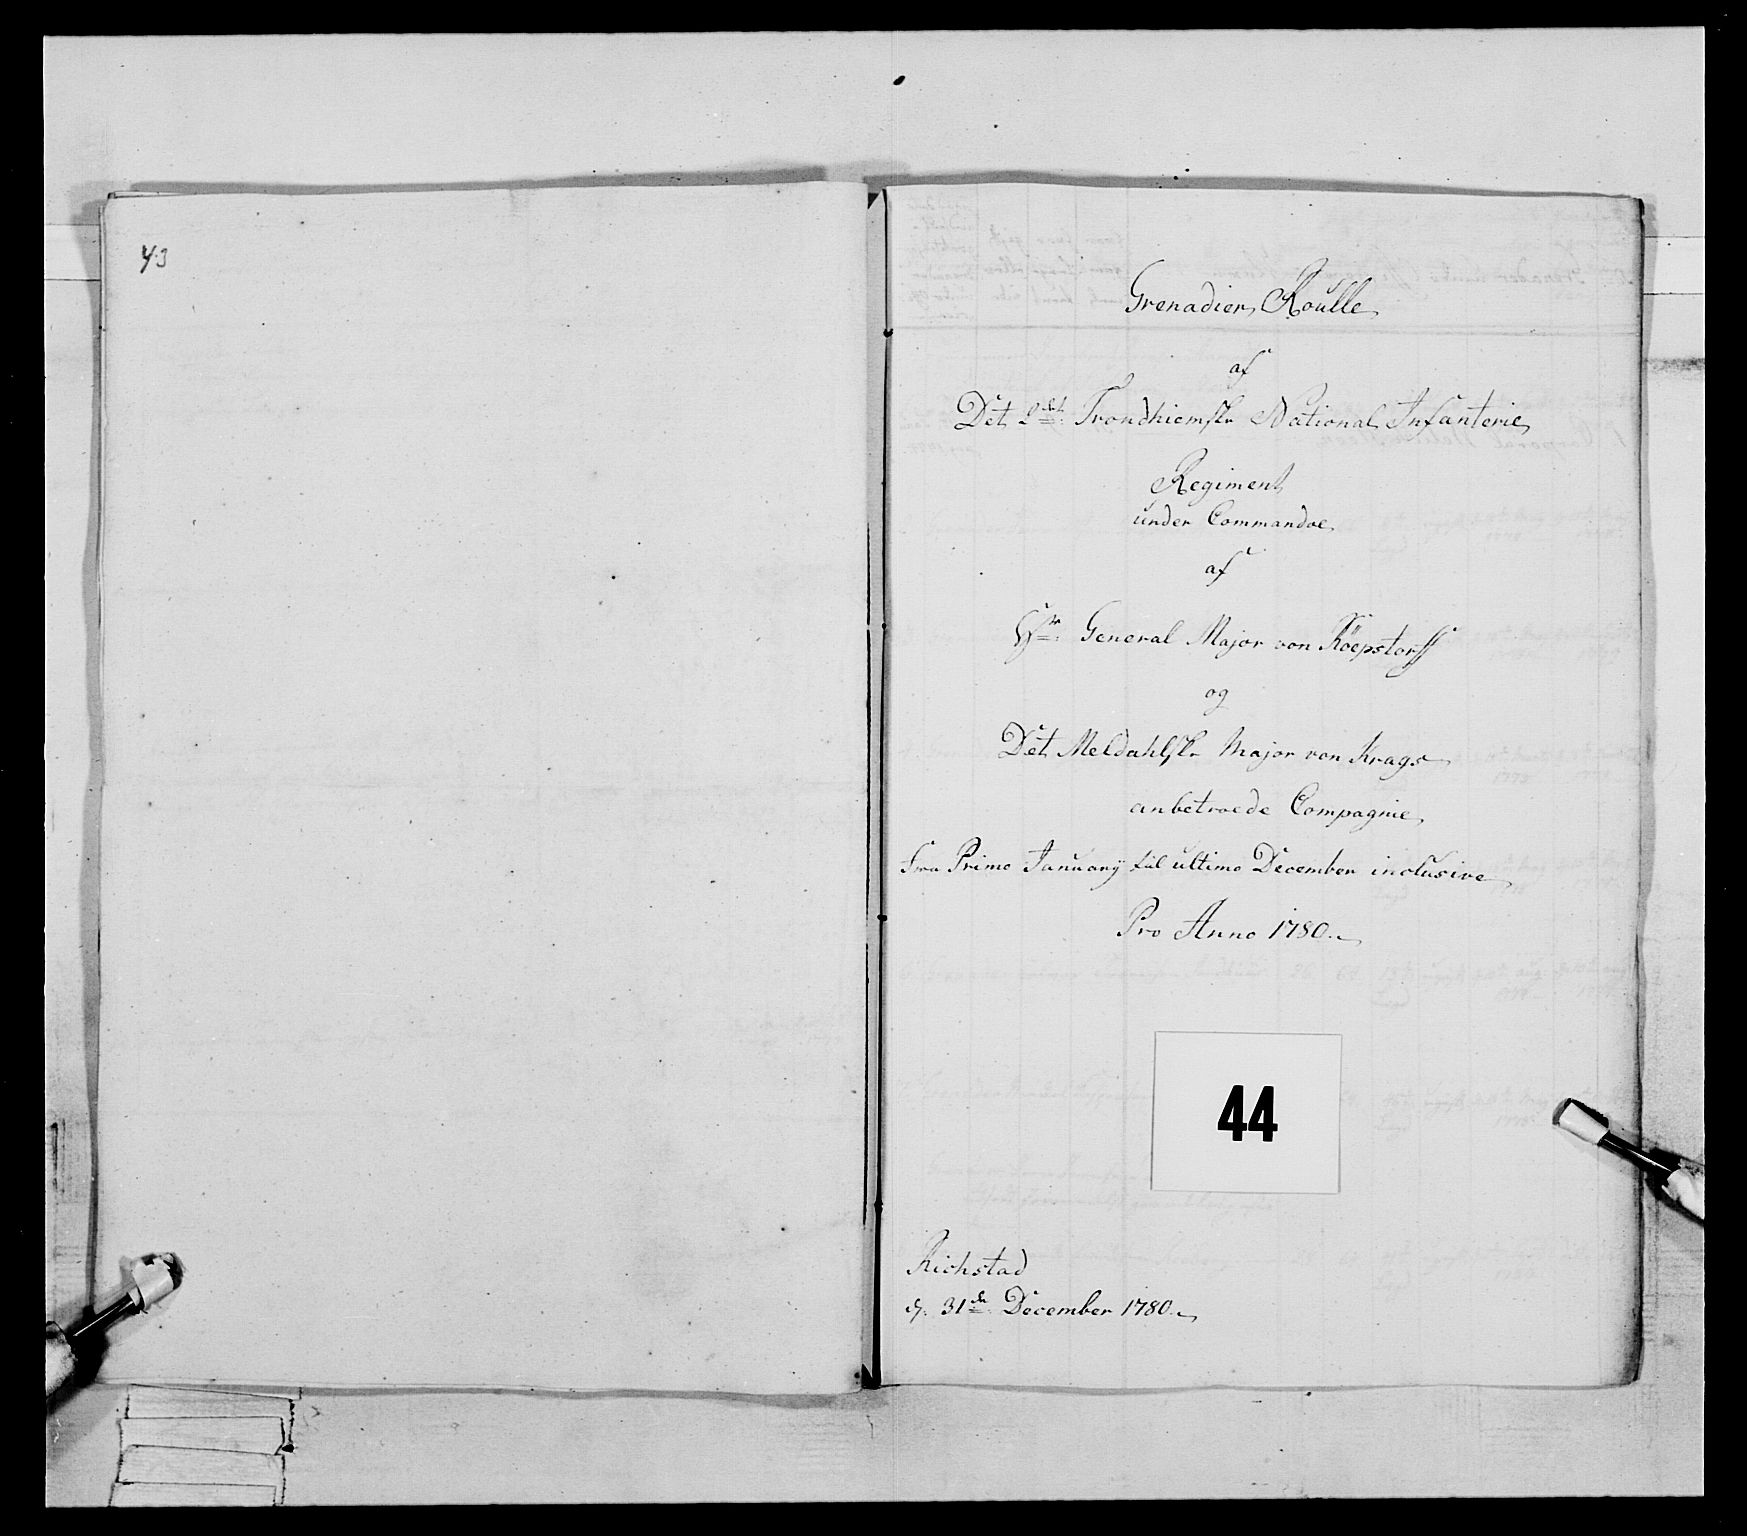 43
Grenadier Roulle
af
Det 2det Trondhiemske National Infanterie
Regiment
under Commandoe
af
Hr: General Major von Köepstorff
og
Det Meldahlske Major von Krags
anbetroede Compagnie
fra Primo January til ultimo December inclusive
Pro Anno 1780.
44
Richstad
d: 31de December 1780.